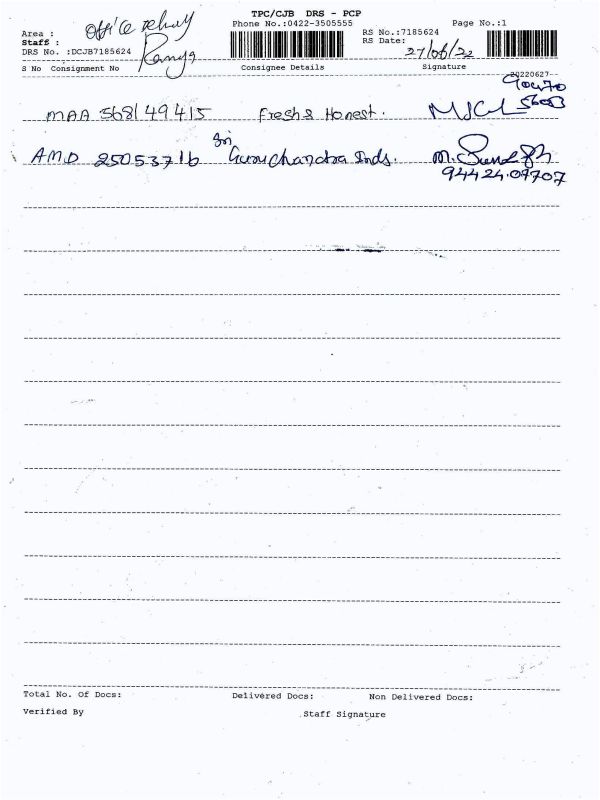 TPC/CJB DRS - PCP
Phone No.:0422-3505555
Page No.:1
Area : office
Staff : Ramya
DRS No. :DCJB7185624
RS No.:7185624
RS Date: 27/06/22
S No Consignment No Consignee Details Signature
20220627-
MAA 568149415 Fresh & Honest. 90470 56083
AMD 25053716 Sri Guruchandra Inds. 94424.09707
Total No. Of Docs: Delivered Docs: Non Delivered Docs:
Verified By Staff Signature